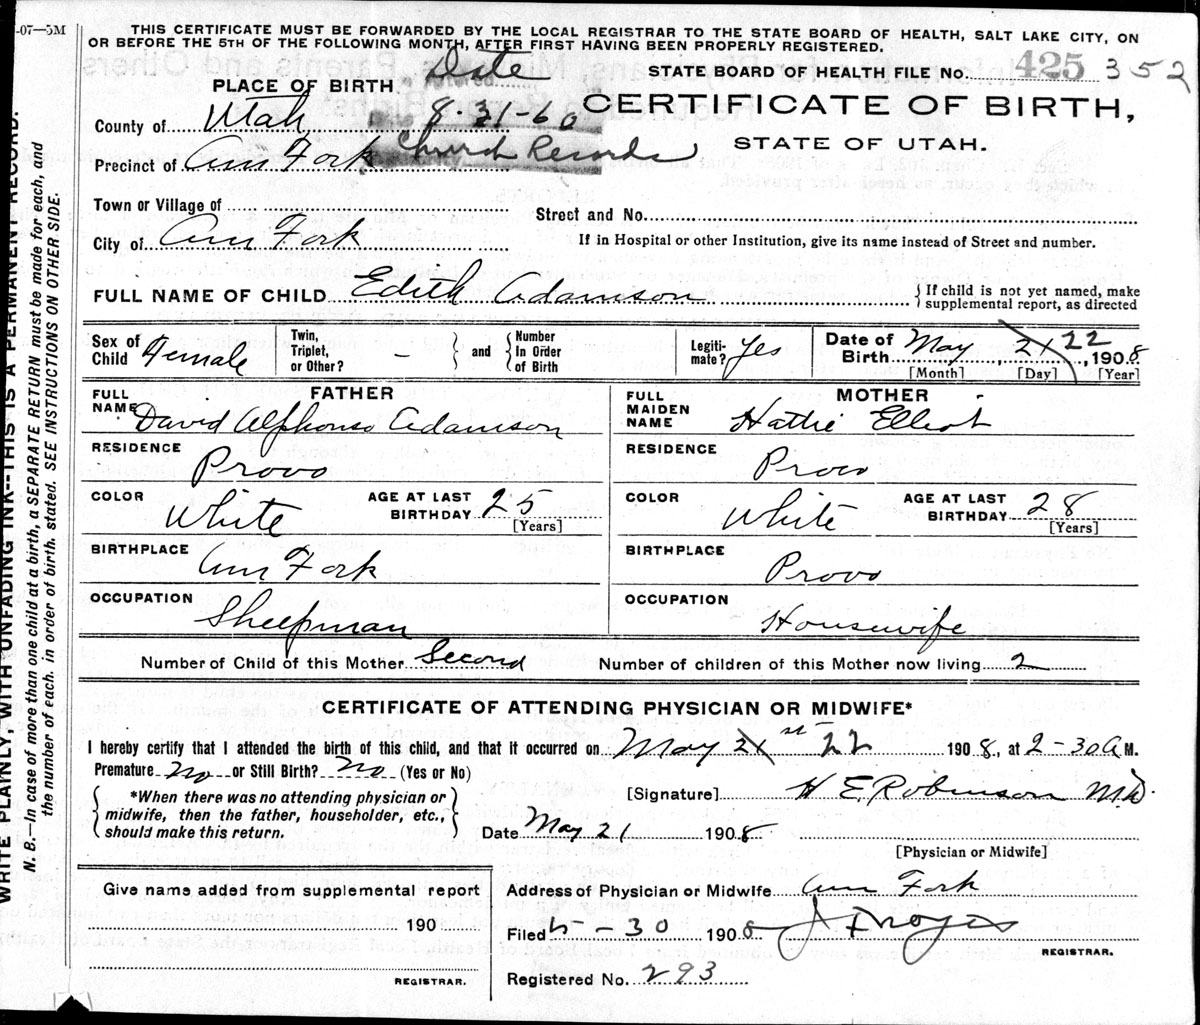 -07—5M
THIS CERTIFICATE MUST BE FORWARDED BY THE LOCAL REGISTRAR TO THE STATE BOARD OF HEALTH, SALT LAKE CITY, ON
OR BEFORE THE 5TH OF THE FOLLOWING MONTH, AFTER FIRST HAVING BEEN PROPERLY REGISTERED.
STATE BOARD OF HEALTH FILE No. 425 352
PLACE OF BIRTH Date
CERTIFICATE OF BIRTH,
STATE OF UTAH.
County of Utah 8-31-60
Precinct of Am Fork Church Records
Town or Village of
Street and No.
City of Am Fork
If in Hospital or other Institution, give its name instead of Street and number.
FULL NAME OF CHILD Edith Adamson { If child is not yet named, make
supplemental report, as directed
Sex of Child Female
Twin, Triplet, or Other? - } and { Number In Order of Birth
Legiti- mate? Yes
Date of Birth May 21 22, 1908
[Month] [Day] [Year]
FATHER
FULL NAME David Alphonso Adamson
RESIDENCE Provo
COLOR White AGE AT LAST BIRTHDAY 25
[Years]
BIRTHPLACE Am Fork
OCCUPATION Sheepman
MOTHER
FULL MAIDEN NAME Hattie Elliot
RESIDENCE Provo
COLOR White AGE AT LAST BIRTHDAY 28
[Years]
BIRTHPLACE Provo
OCCUPATION Housewife
Number of Child of this Mother Second Number of children of this Mother now living 2
CERTIFICATE OF ATTENDING PHYSICIAN OR MIDWIFE*
I hereby certify that I attended the birth of this child, and that it occurred on May 21st 22 1908, at 2-30 A M.
Premature No or Still Birth? No (Yes or No)
{ *When there was no attending physician or
midwife, then the father, householder, etc.,
should make this return. }
[Signature] H E. Robinson M.D.
Date May 21 1908
[Physician or Midwife]
Give name added from supplemental report
190
REGISTRAR.
Address of Physician or Midwife Am Fork
Filed 5-30 1908
REGISTRAR.
Registered No. 293
WRITE PLAINLY, WITH UNFADING INK--THIS IS A PERMANENT RECORD.
N. B.—In case of more than one child at a birth, a SEPARATE RETURN must be made for each, and
the number of each, in order of birth, stated. SEE INSTRUCTIONS ON OTHER SIDE.